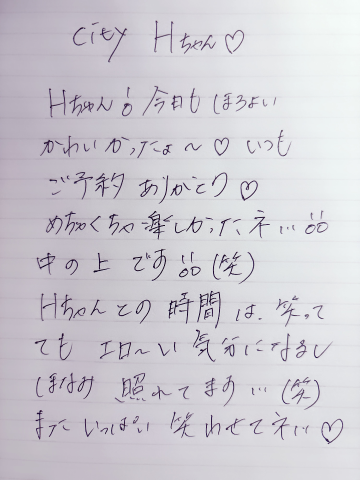 City Hちゃん♡
Hちゃん!! 今日も ほろよい
かわいかったょ〜♡ いつも
ご予約 ありがとう♡
めちゃくちゃ楽しかったネ…!!!
中の上 です!!!(笑)
Hちゃんとの 時間 は、笑って
ても エロ〜い 気分になるし
ほなみ 照れてます…(笑)
またいっぱい 笑わせてネ…♡